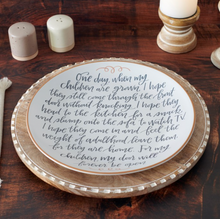 One day, when my
children are grown, I hope
they still come through the front
door without knocking. I hope they
head to the kitchen for a snack
and slump onto the sofa to watch TV
I hope they come in and feel the
weight of adulthood leave them
for they are home. To my
children, my door will
forever be open